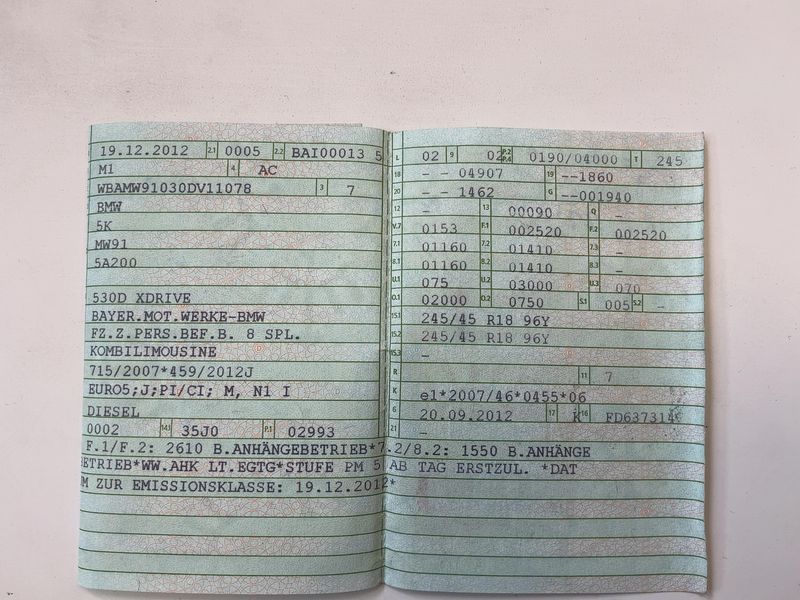 19.12.2012 2.1 0005 2.2 BAI00013 5
M1 4 AC
WBAMW91030DV11078 3 7
BMW
5K
MW91
5A200
530D XDRIVE
BAYER.MOT.WERKE-BMW
FZ.Z.PERS.BEF.B. 8 SPL.
KOMBILIMOUSINE
715/2007*459/2012J
EURO5;J;PI/CI; M, N1 I
DIESEL
0002 14.1 35J0 P.1 02993
F.1/F.2: 2610 B.ANHÄNGEBETRIEB*7
ETRIEB*WW.AHK LT.EGTG*STUFE PM 5
M ZUR EMISSIONSKLASSE: 19.12.2012*
L 02 9 02 P.2 P.4 0190/04000 T 245
18 - - 04907 19 --1860
20 - - 1462 G --001940
12 - 13 00090 Q -
V.7 0153 F.1 002520 F.2 002520
7.1 01160 7.2 01410 7.3 -
8.1 01160 8.2 01410 8.3 -
U.1 075 U.2 03000 U.3 070
O.1 02000 O.2 0750 S.1 005 S.2 -
15.1 245/45 R18 96Y
15.2 245/45 R18 96Y
15.3 -
R 11 7
K e1*2007/46*0455*06
6 20.09.2012 17 K 16
21 -
.2/8.2: 1550 B.ANHÄNGE
AB TAG ERSTZUL. *DAT